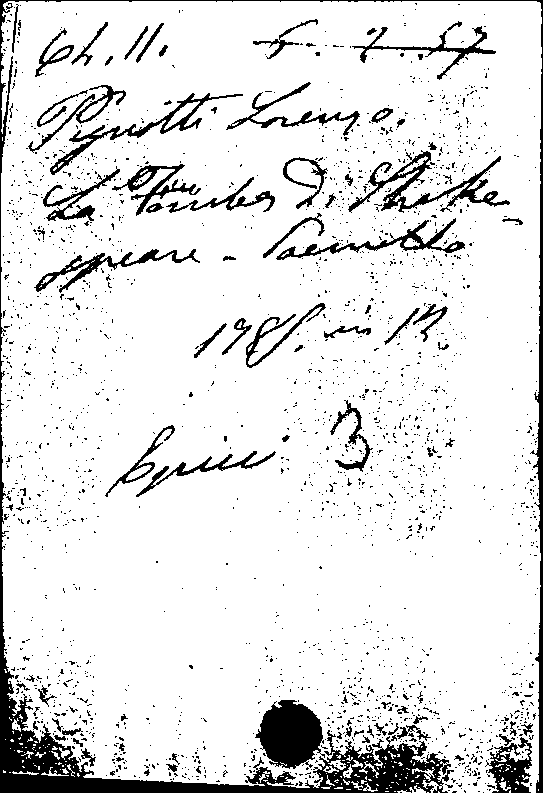 Ch. II. 5. 7. 57
Pignotti Lorenzo.
La Tomba Di Shake-
speare - Poemetto
in 12.
3